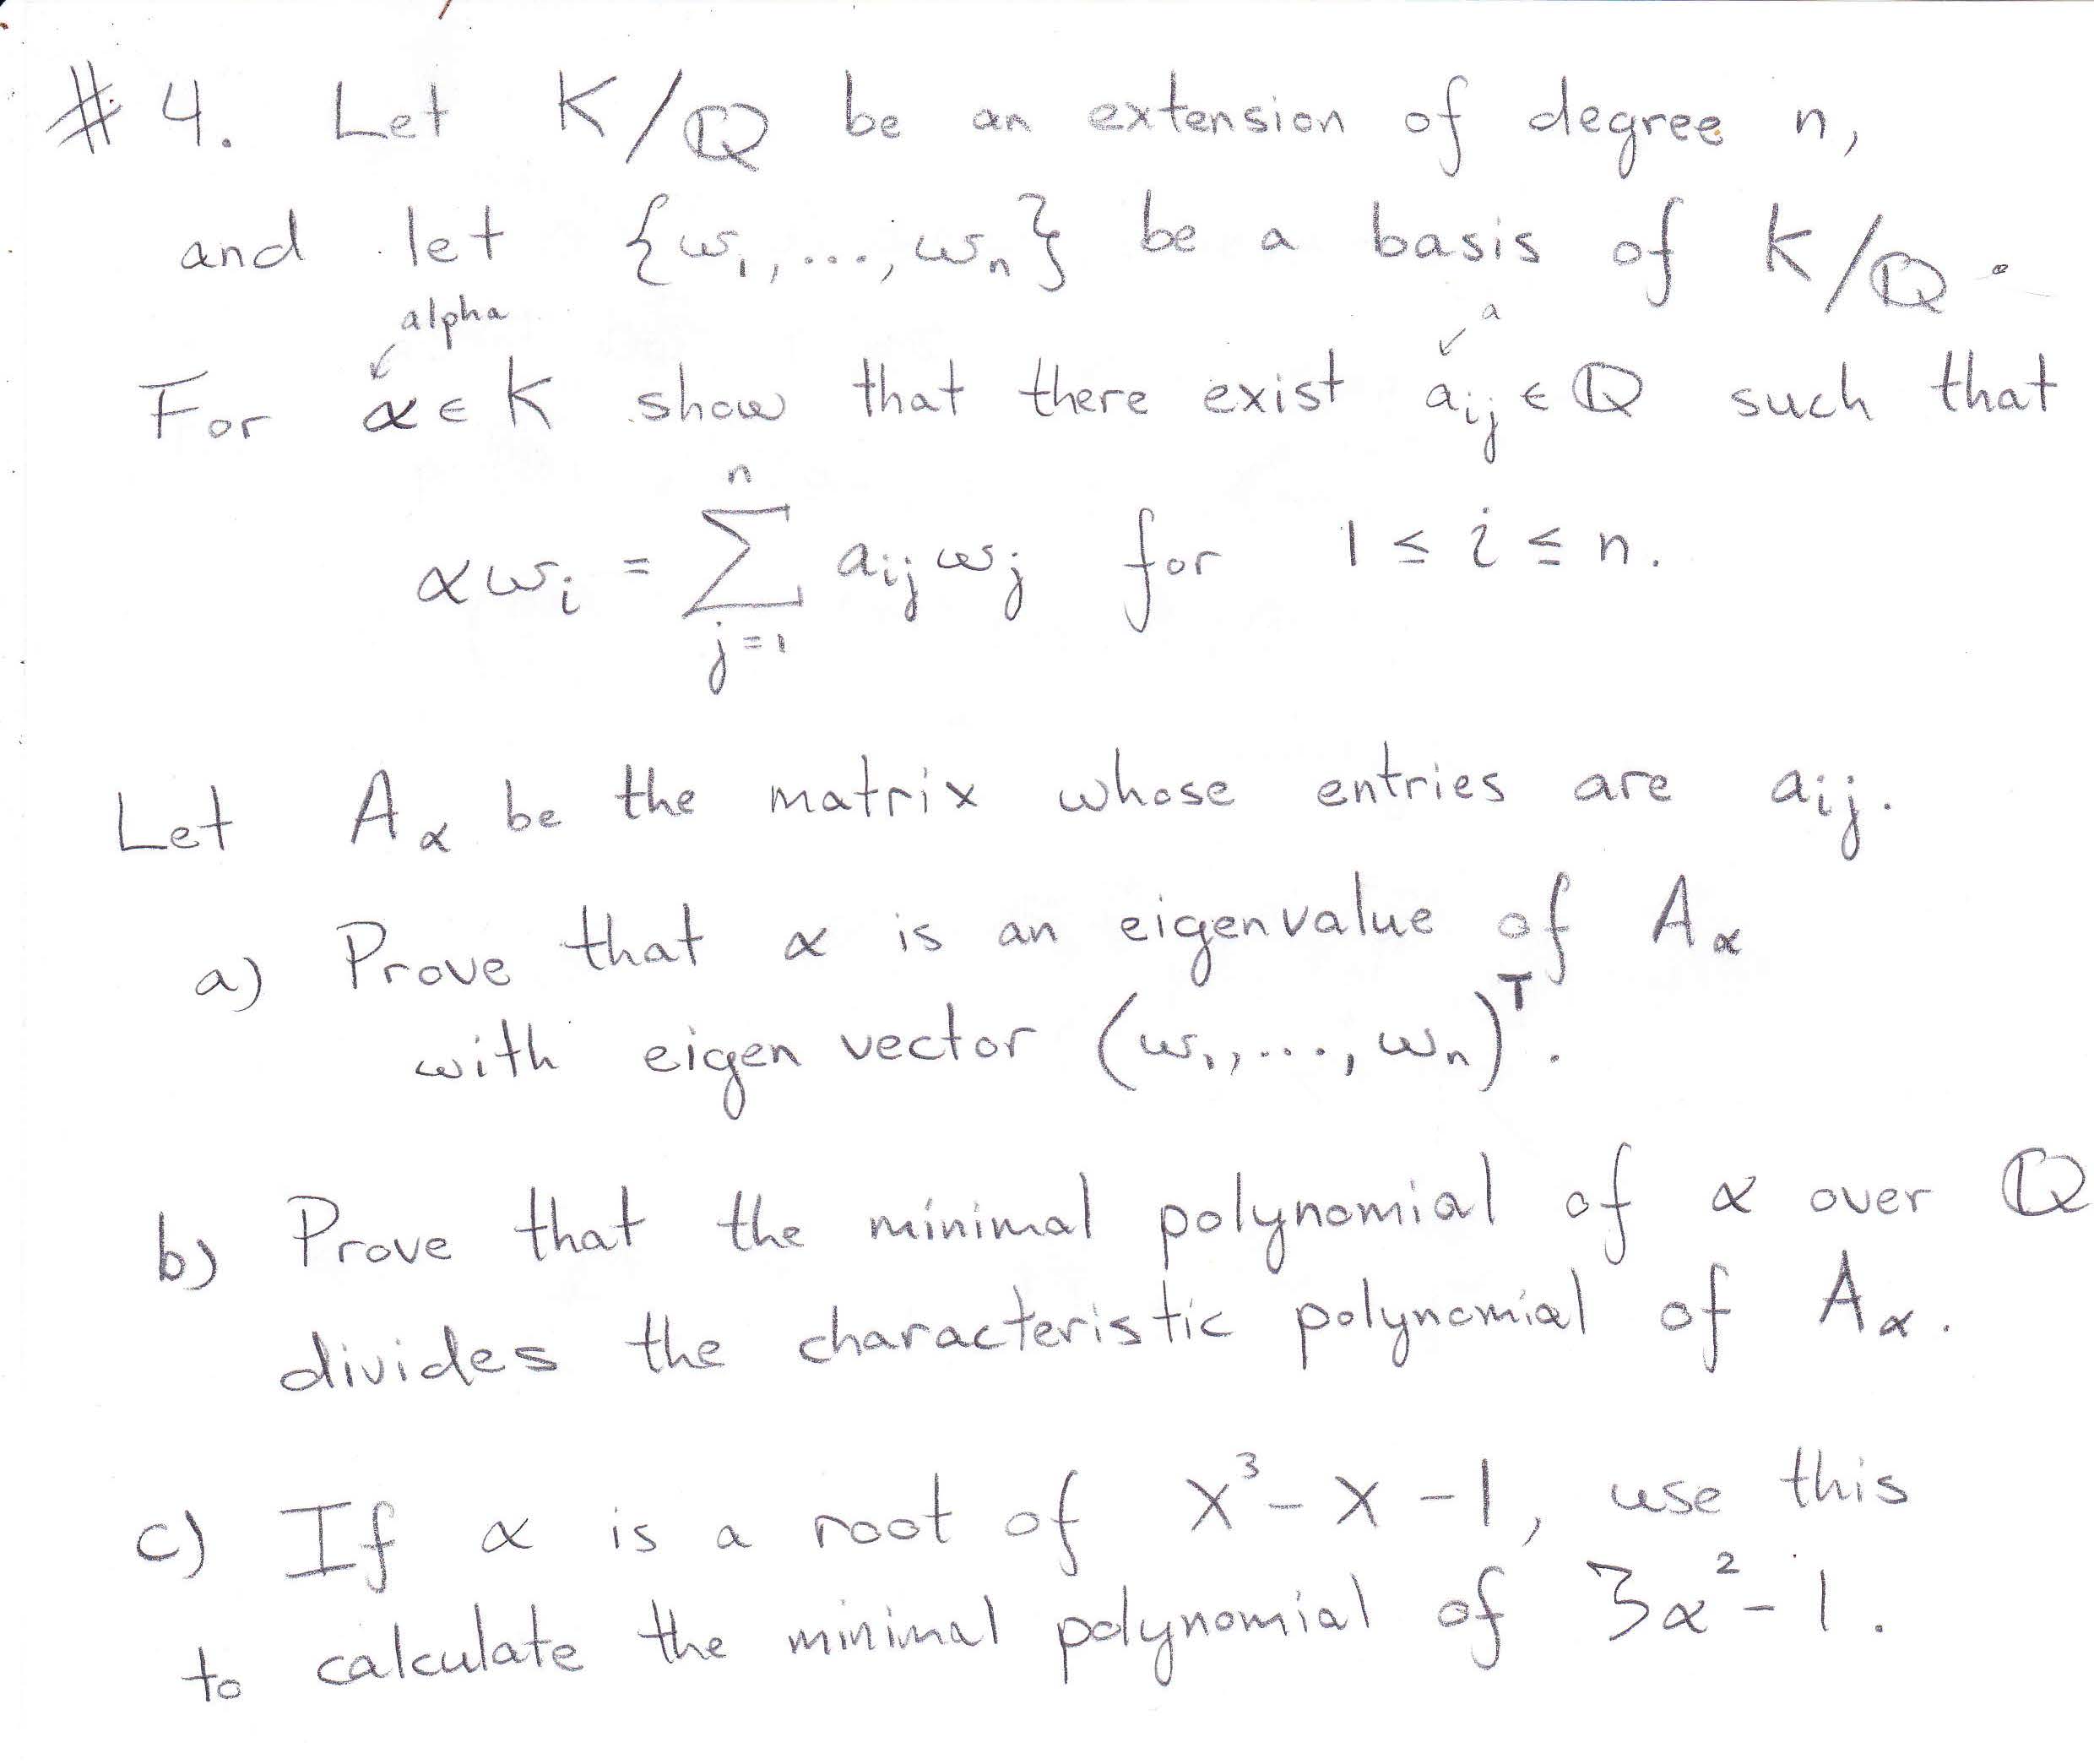 #4. Let K/ℚ be an extension of degree n,
and let {ω₁, ..., ωₙ} be a basis of K/ℚ.
alpha a
For α ∈ K show that there exist aᵢⱼ ∈ ℚ such that
n
αωᵢ = Σ aᵢⱼωⱼ for 1 ≤ i ≤ n.
j=1
Let A_α be the matrix whose entries are aᵢⱼ.
a) Prove that α is an eigenvalue of A_α
with eigen vector (ω₁, ..., ωₙ)ᵀ.
b) Prove that the minimal polynomial of α over ℚ
divides the characteristic polynomial of A_α.
c) If α is a root of x³ - x - 1, use this
to calculate the minimal polynomial of 3α² - 1.